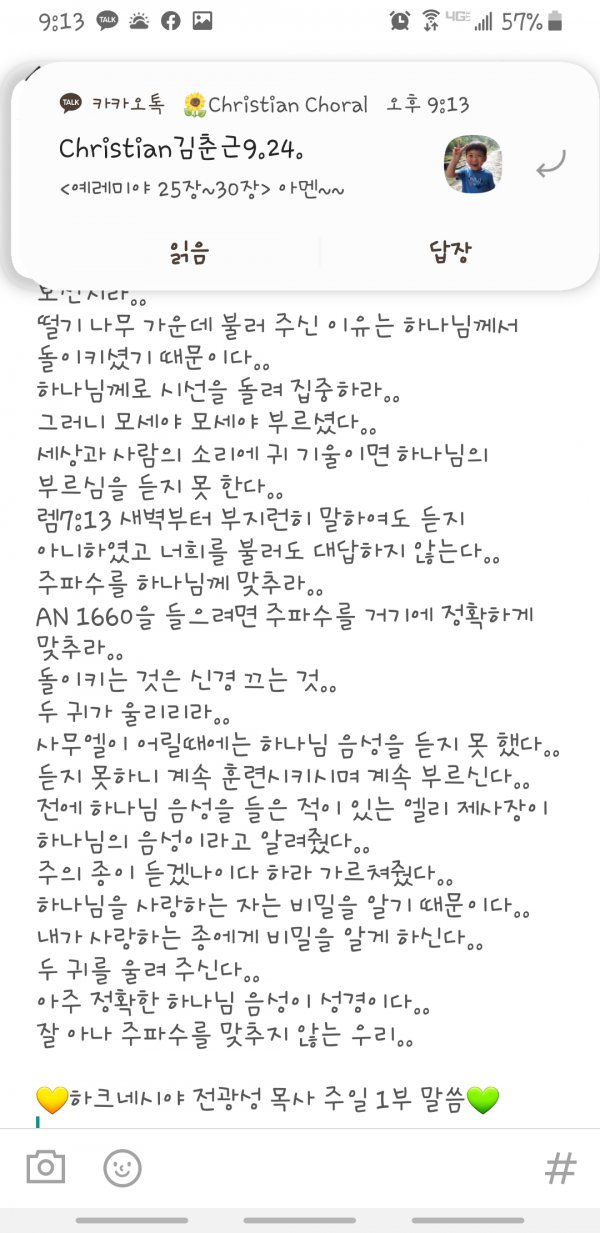 9:13 TALK 4GE 57%
TALK 카카오톡 🌻Christian Choral 오후 9:13
Christian김춘근9.24.
<예레미야 25장~30장> 아멘~~
읽음 답장
떨기 나무 가운데 불러 주신 이유는 하나님께서
돌이키셨기 때문이다..
하나님께로 시선을 돌려 집중하라..
그러니 모세야 모세야 부르셨다..
세상과 사람의 소리에 귀 기울이면 하나님의
부르심을 듣지 못 한다..
렘7:13 새벽부터 부지런히 말하여도 듣지
아니하였고 너희를 불러도 대답하지 않는다..
주파수를 하나님께 맞추라..
AN 1660을 들으려면 주파수를 거기에 정확하게
맞추라..
돌이키는 것은 신경 끄는 것..
두 귀가 울리리라..
사무엘이 어릴때에는 하나님 음성을 듣지 못 했다..
듣지 못하니 계속 훈련시키시며 계속 부르신다..
전에 하나님 음성을 들은 적이 있는 엘리 제사장이
하나님의 음성이라고 알려줬다..
주의 종이 듣겠나이다 하라 가르쳐줬다..
하나님을 사랑하는 자는 비밀을 알기 때문이다..
내가 사랑하는 종에게 비밀을 알게 하신다..
두 귀를 울려 주신다..
아주 정확한 하나님 음성이 성경이다..
잘 아나 주파수를 맞추지 않는 우리..
💛하크네시야 전광성 목사 주일 1부 말씀💚
#